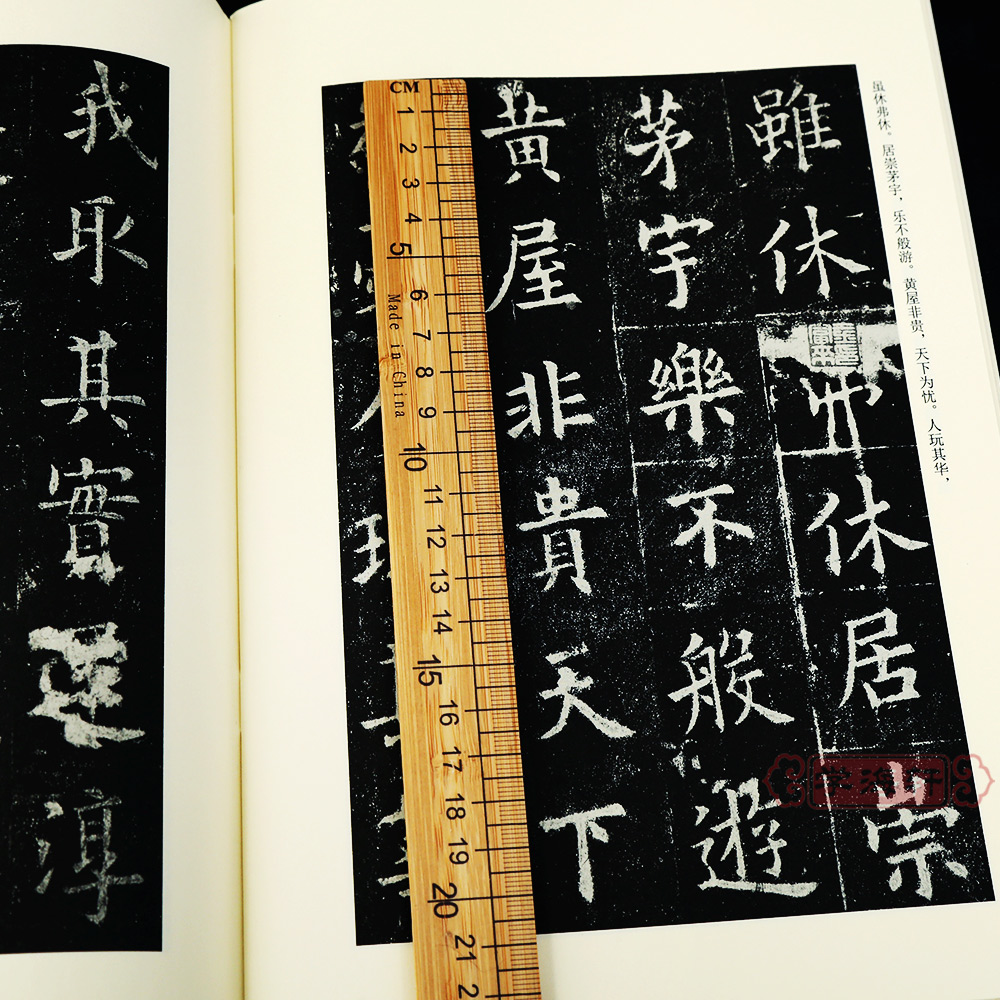 虽休弗休。居崇茅宇，乐不般游。黄屋非贵，天下为忧。人玩其华，
雖休弗休居崇
茅宇樂不般遊
黄屋非貴天下
CM
1
2
3
4
5
6
7
8
9
10
11
12
13
14
15
16
17
18
19
20
21
Made in China
我取其實還淳